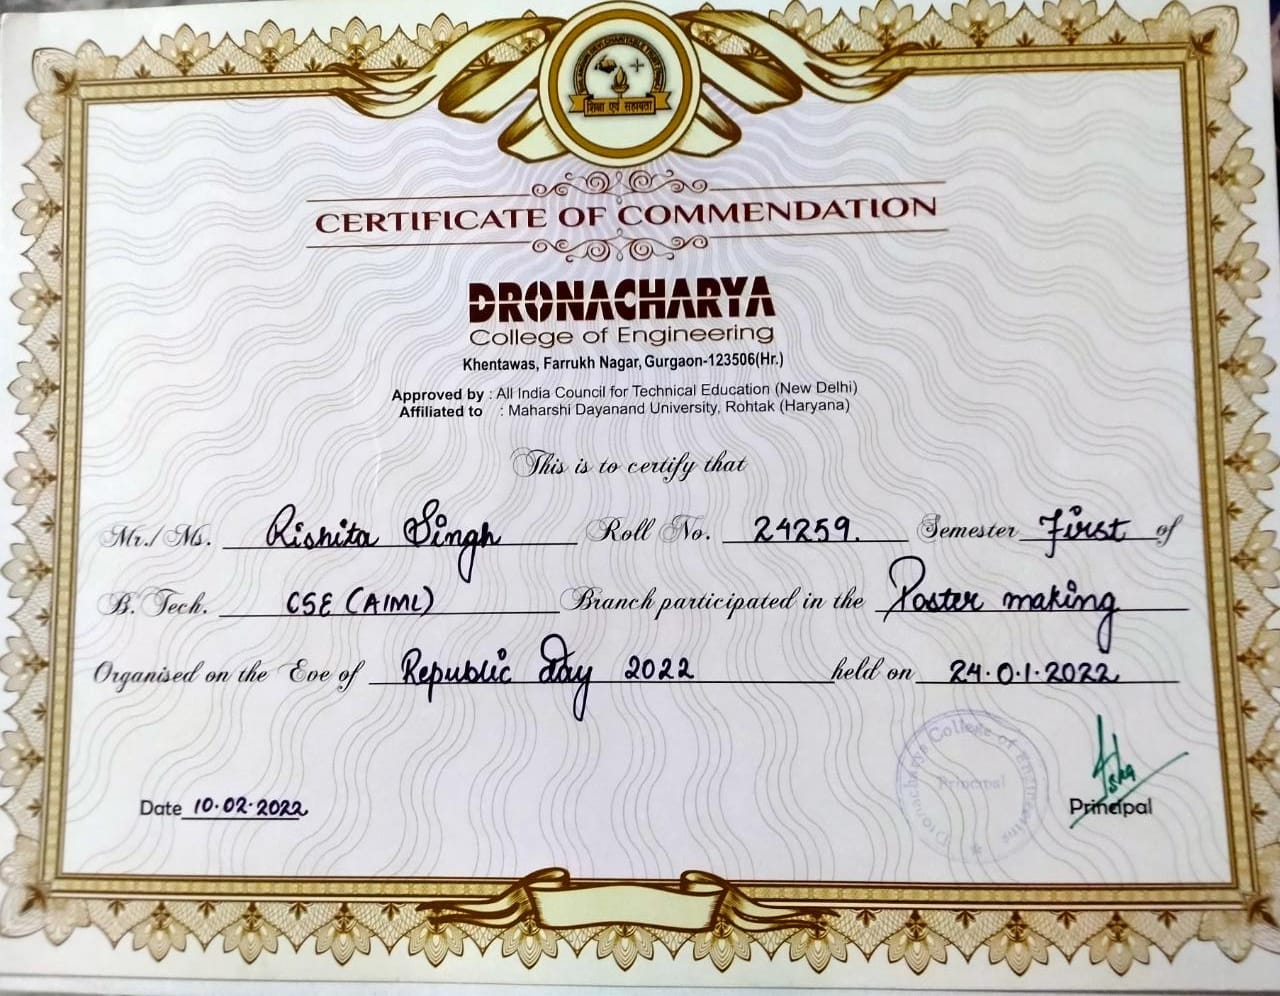 शिक्षा एवं सहायता
CERTIFICATE OF COMMENDATION
DRONACHARYA
College of Engineering
Khentawas, Farrukh Nagar, Gurgaon-123506(Hr.)
Approved by : All India Council for Technical Education (New Delhi)
Affiliated to : Maharshi Dayanand University, Rohtak (Haryana)
This is to certify that
Mr./Ms. Rishita Singh Roll No. 24259. Semester First of
B. Tech. CSE (AIML) Branch participated in the Poster making
Organised on the Eve of Republic Day 2022 held on 24.0.1.2022
Dronacharya College of Engineering
Principal
Date 10.02.2022
Principal